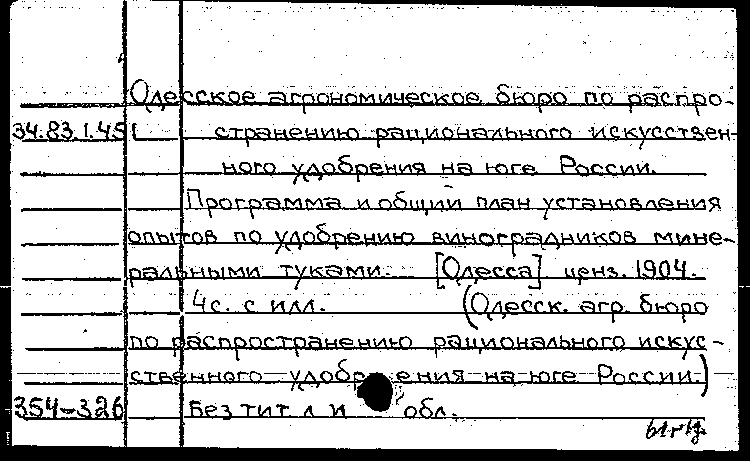 Одесское агрономическое бюро по распро-
34.83.1.451 странению рационального искусствен-
ного удобрения на юге России.
Программа и общий план установления
опытов по удобрению виноградников мине-
ральными туками. [Одесса] ценз. 1904.
4с. с илл. (Одесск. агр. бюро
по распространению рационального искус-
ственного удобрения на юге России.)
354-326 Без тит л и обл.